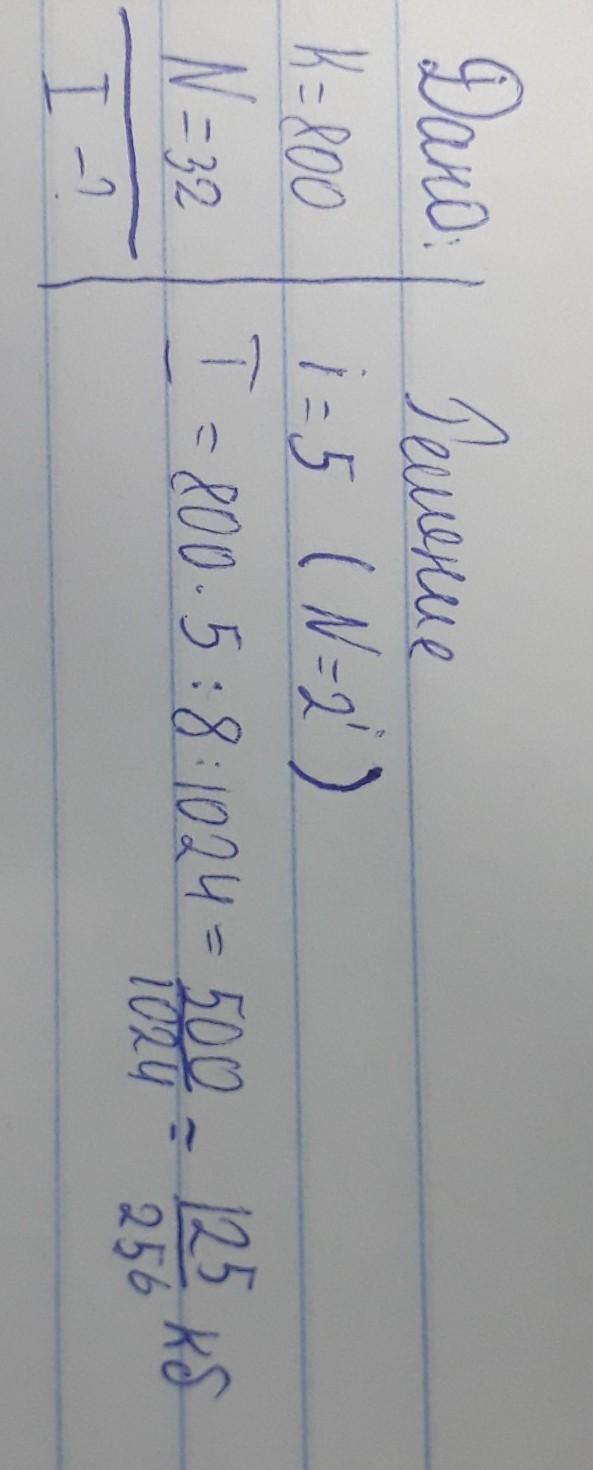 Дано: Решение
K=800 i=5 (N=2^i)
N=32 I=800·5:8:1024=500/1024=125/256 кб
I-?